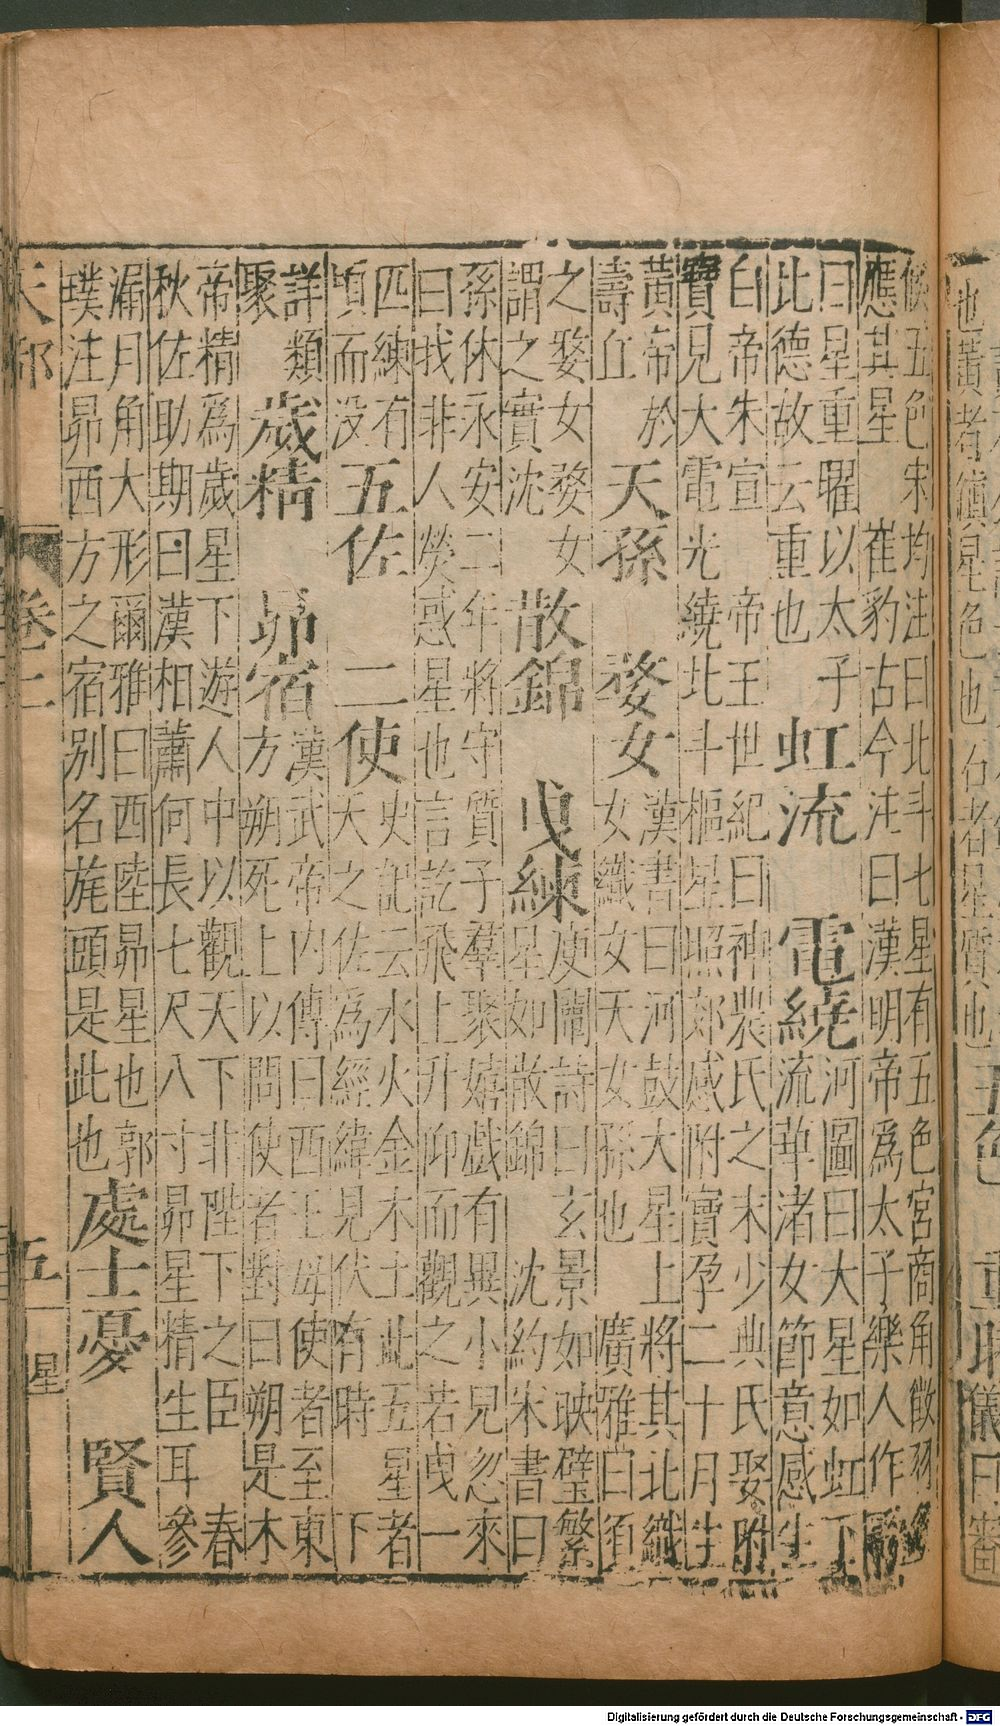 也黃者鎮星色也 白者星質也 五色
候五色宋均注曰北斗七星有五色宮商角徵羽各
應其星 崔豹古今注曰漢明帝為太子樂人作歌
曰星重曜以太子
比德故云重也
虹流 電繞
河圖曰大星如虹下
流華渚女節意感生
白帝朱宣 帝王世紀曰神農氏之末少典氏娶附
寶見大電光繞北斗樞星照郊感附寶孕二十月生
黃帝於
壽丘
天孫 婺女
漢書曰河鼓大星上將其北織
女織女天女孫也 廣雅曰須
之婺女婺女
謂之實沈
散錦 曳練
庾闡詩曰玄景如映璧繁
星如散錦 沈約宋書曰
孫休永安二年將守質子羣聚嬉戲有異小兒忽來
曰我非人熒惑星也言訖飛上升仰而觀之若曳一
匹練有
頃而没
五佐 二使
史記云水火金木土此五星者
天之佐為經緯見伏有時 下
詳類
聚
歲精 昴宿
漢武帝内傳曰西王母使者至東
方朔死上以問使者對曰朔是木
帝精為歲星下遊人中以觀天下非陛下之臣 春
秋佐助期曰漢相蕭何長七尺八寸昴星精生耳參
漏月角大形爾雅曰西陸昴星也郭
璞注昴西方之宿別名旄頭是此也
處士憂 賢人
天部 卷上 五 星
Digitalisierung gefördert durch die Deutsche Forschungsgemeinschaft - DFG